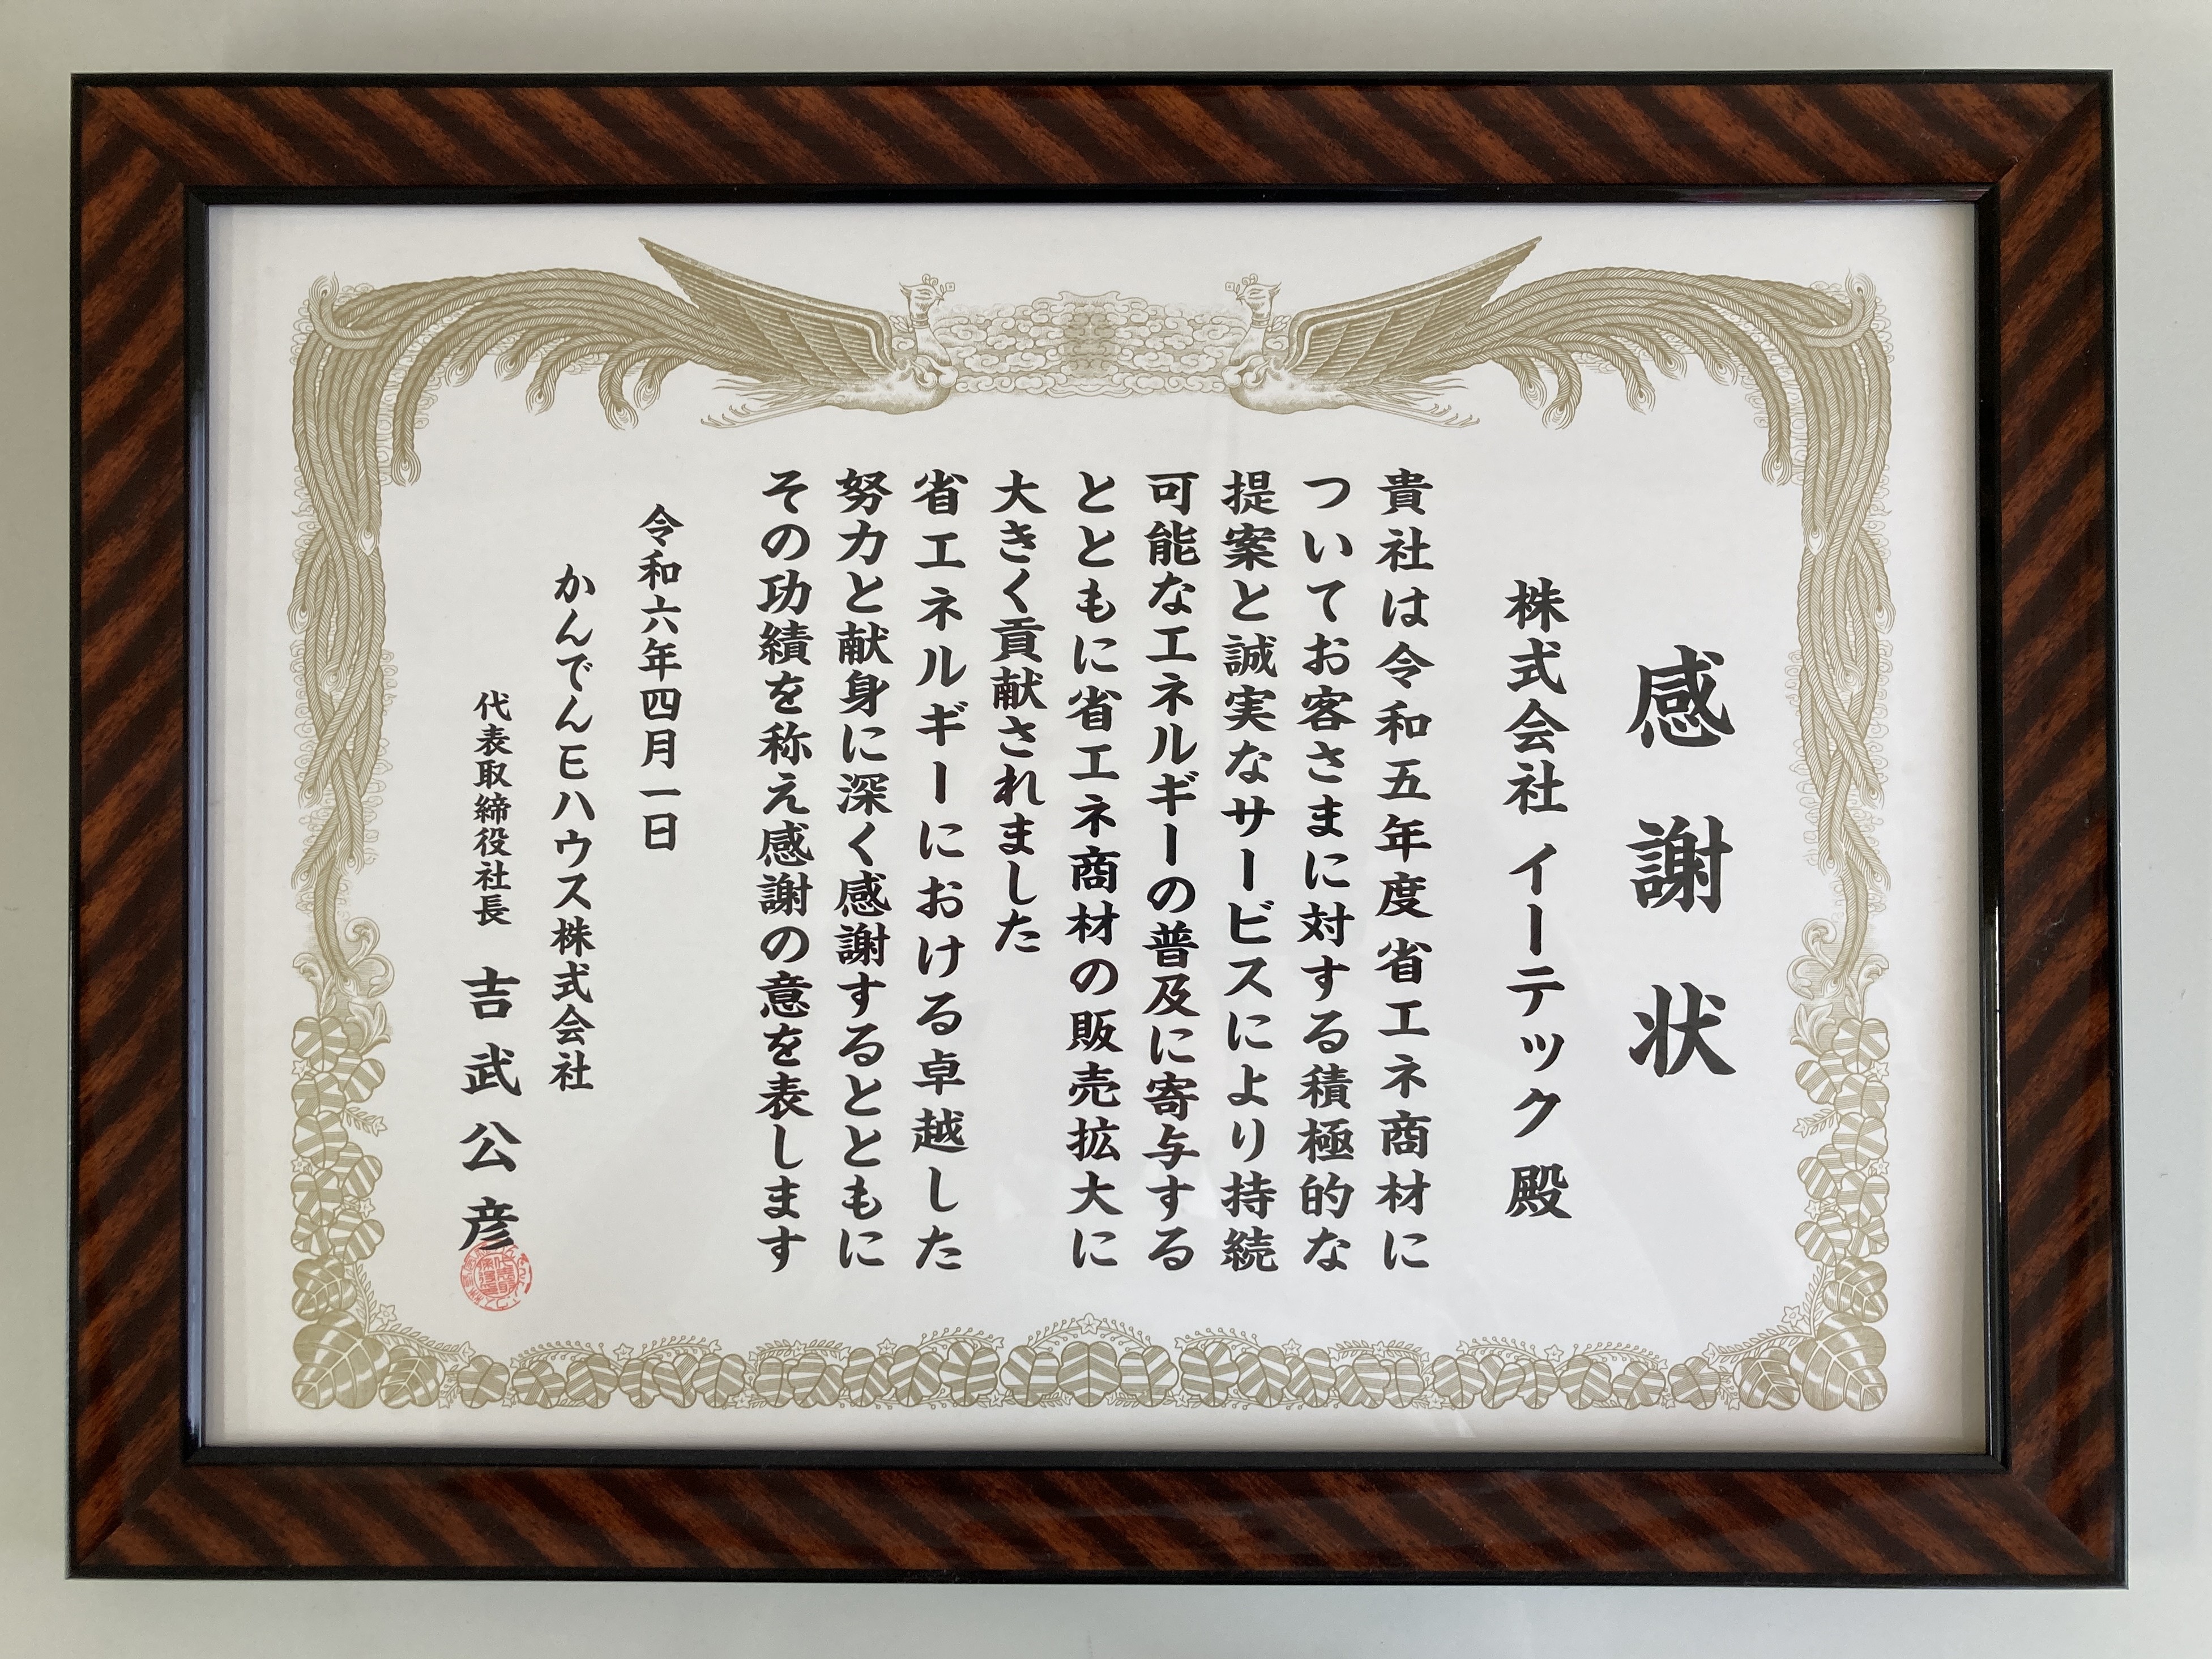 感謝状
株式会社 イーテック 殿
貴社は令和五年度省エネ商材に
ついてお客さまに対する積極的な
提案と誠実なサービスにより持続
可能なエネルギーの普及に寄与する
とともに省エネ商材の販売拡大に
大きく貢献されました
省エネルギーにおける卓越した
努力と献身に深く感謝するとともに
その功績を称え感謝の意を表します
令和六年四月一日
かんでんEハウス株式会社
代表取締役社長 吉武公彦